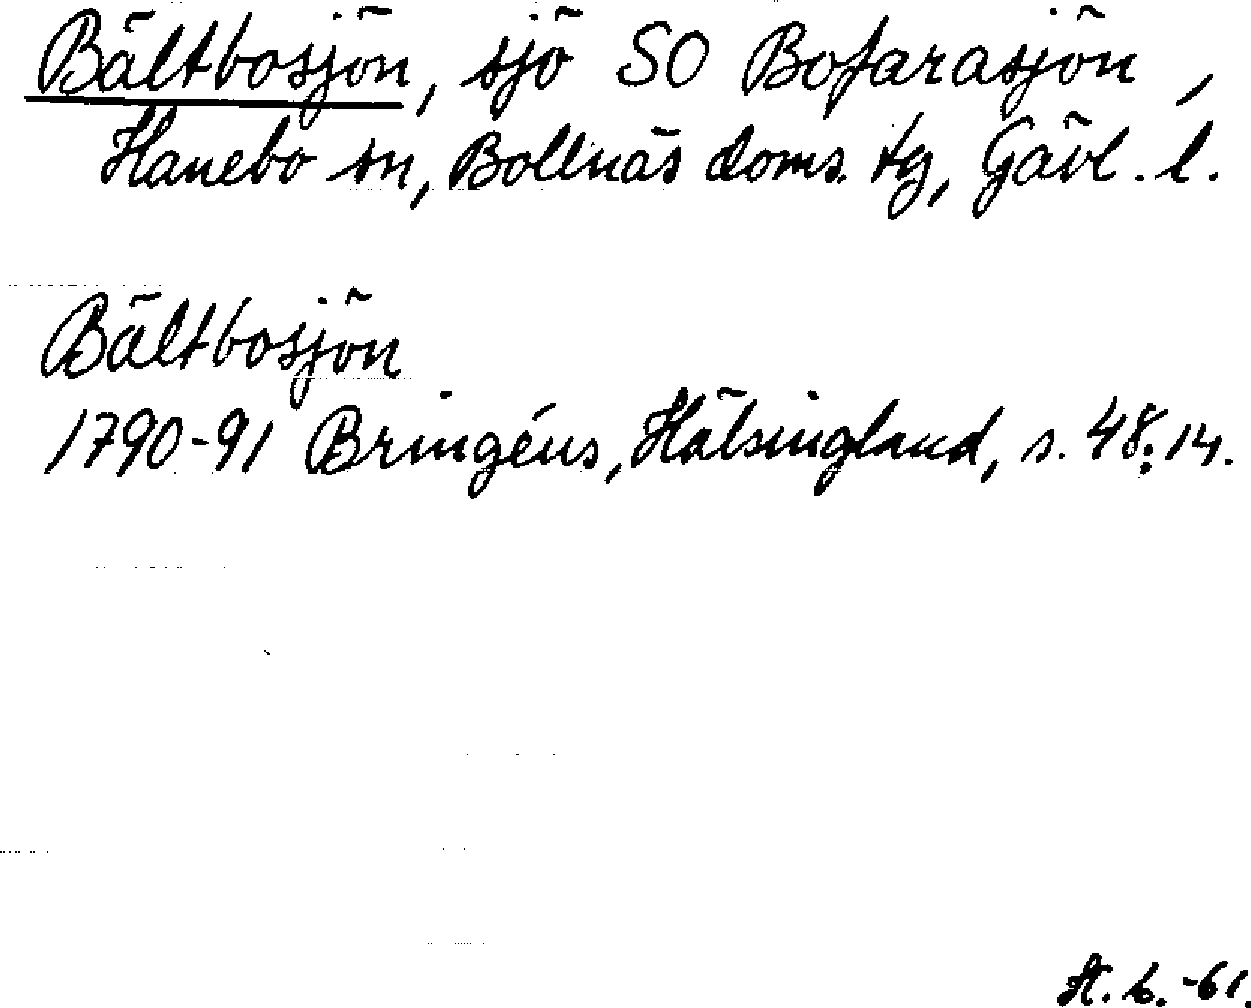 Bältbosjön, sjö SO Bofarasjön,
Hanebo sn, Bollnäs doms. tg, Gävl. l.
Bältbosjön
1790-91 Bringéus, Hälsingland, s. 48:14.
-61.